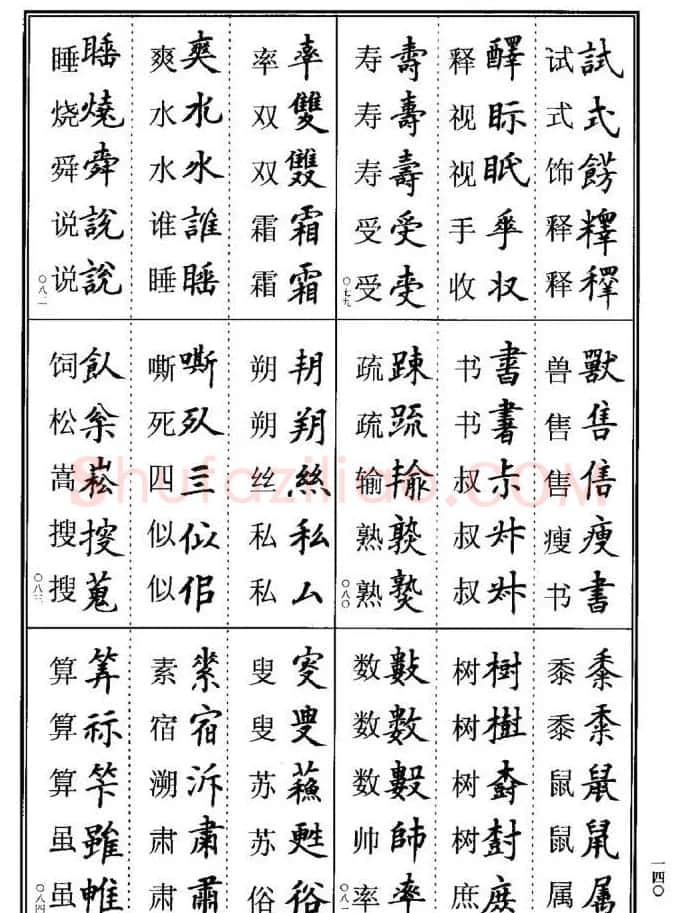 試式餝𥼶䆁
试式饰释释
醳眎眂収
释视视手收
壽壽壽受
寿寿寿受受
〇七九
獸售售瘦書
兽售售瘦书
書書尗
书书叔叔叔
踈䟽輸
疏疏输熟熟
〇八〇
黍黍鼠鼠属
黍黍鼠鼠属
樹樹庶
树树树树庶
數數數師率
数数数帅率
〇八一
率雙雙霜霜
率双双霜霜
爽水水誰睡
爽水水谁睡
睡燒舜説說
睡烧舜说说
〇八二
朔絲私厶
朔朔丝私私
嘶亖似佀
嘶死四似似
飤枀崧搜蒐
饲松嵩搜搜
〇八三
叟蘇甦俗
叟叟苏苏俗
宿泝肅肅
素宿溯肃肃
筭祘雖
算算算虽虽
〇八四
一四〇
Shufaziliao.COM